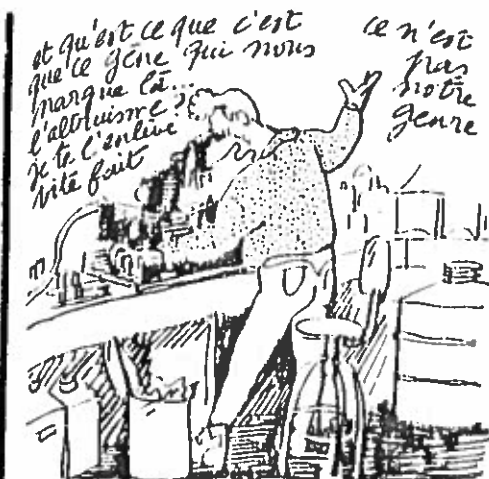 et qu'est ce que c'est
que ce gène qui nous
marque là...
l'altruisme ?
je te l'enlève
vite fait
ce n'est
pas
notre
genre